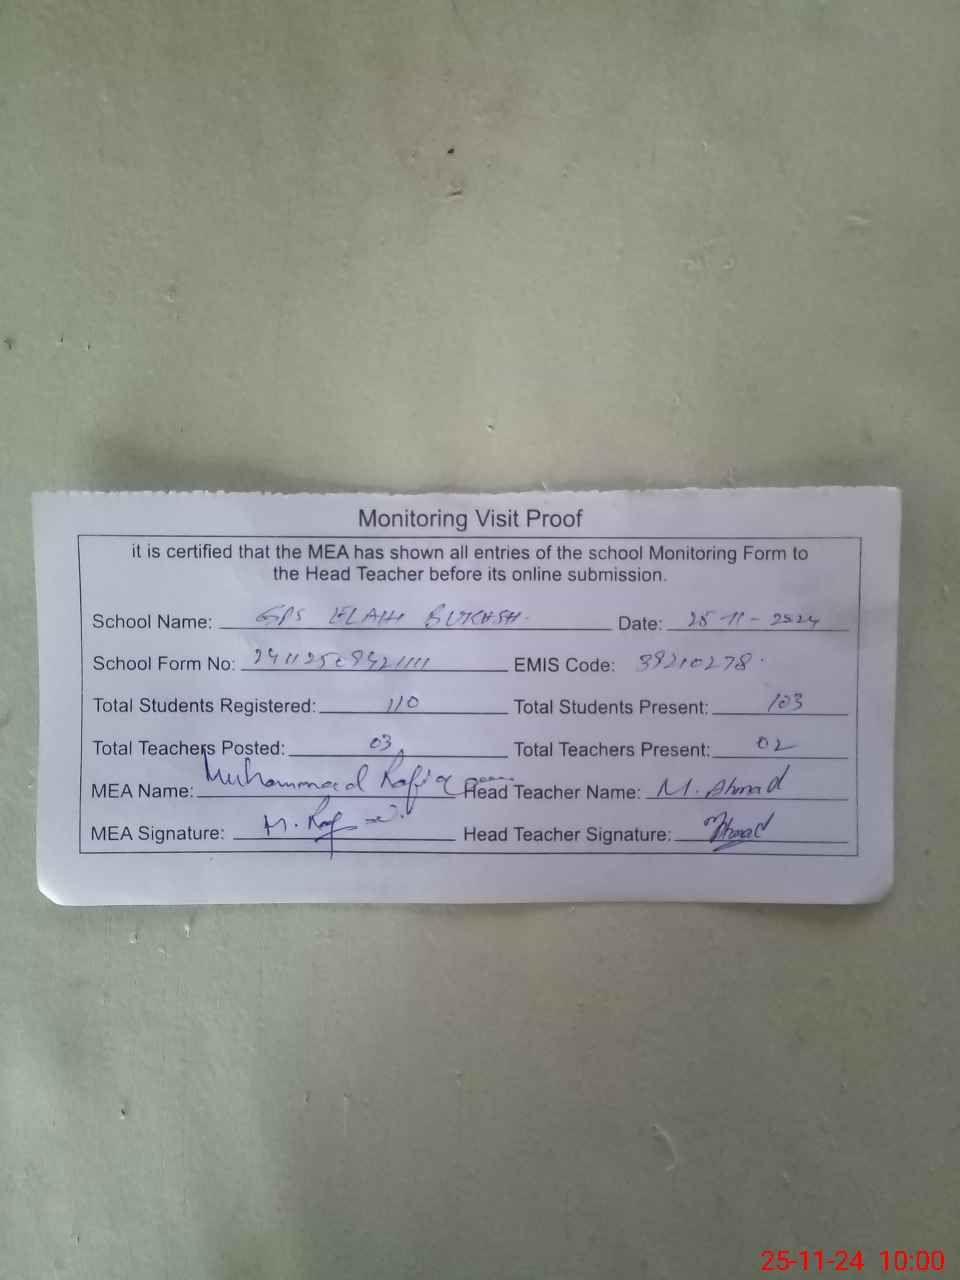 Monitoring Visit Proof
it is certified that the MEA has shown all entries of the school Monitoring Form to
the Head Teacher before its online submission.
School Name: GPS ELAHI BUKHSH. Date: 25-11-2024
School Form No: EMIS Code: 39210278.
Total Students Registered: 110 Total Students Present: 103
Total Teachers Posted: 03 Total Teachers Present: 02
MEA Name: Muhammad Rafiq Head Teacher Name: M. Ahmad
MEA Signature: M. Head Teacher Signature: Ahmad
25-11-24 10:00